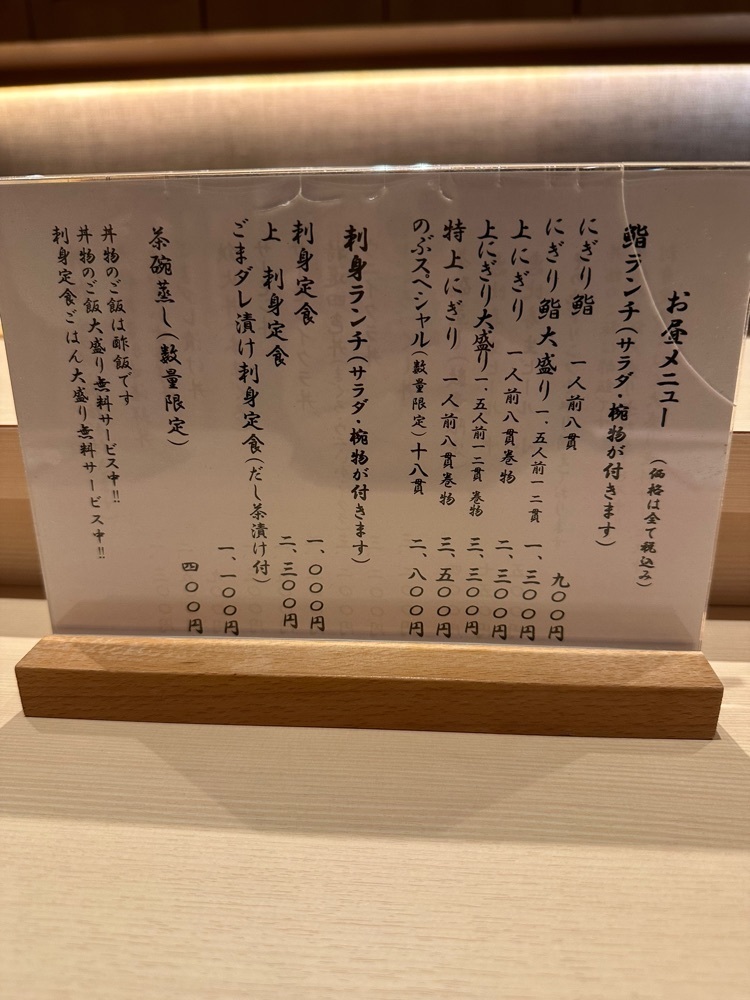 お昼メニュー（価格は全て税込み）
鮨ランチ（サラダ・椀物が付きます）
にぎり鮨 一人前八貫 九〇〇円
にぎり鮨大盛り 一、五人前一二貫 一、三〇〇円
上にぎり 一人前八貫巻物 二、三〇〇円
上にぎり大盛り 一、五人前一二貫 巻物 三、三〇〇円
特上にぎり 一人前八貫巻物 三、五〇〇円
のぶスペシャル（数量限定）十八貫 二、八〇〇円
刺身ランチ（サラダ・椀物が付きます）
刺身定食 一、〇〇〇円
上 刺身定食 二、三〇〇円
ごまダレ漬け刺身定食（だし茶漬け付） 一、一〇〇円
茶碗蒸し（数量限定） 四〇〇円
丼物のご飯は酢飯です
丼物のご飯大盛り無料サービス中!!
刺身定食ごはん大盛り無料サービス中!!